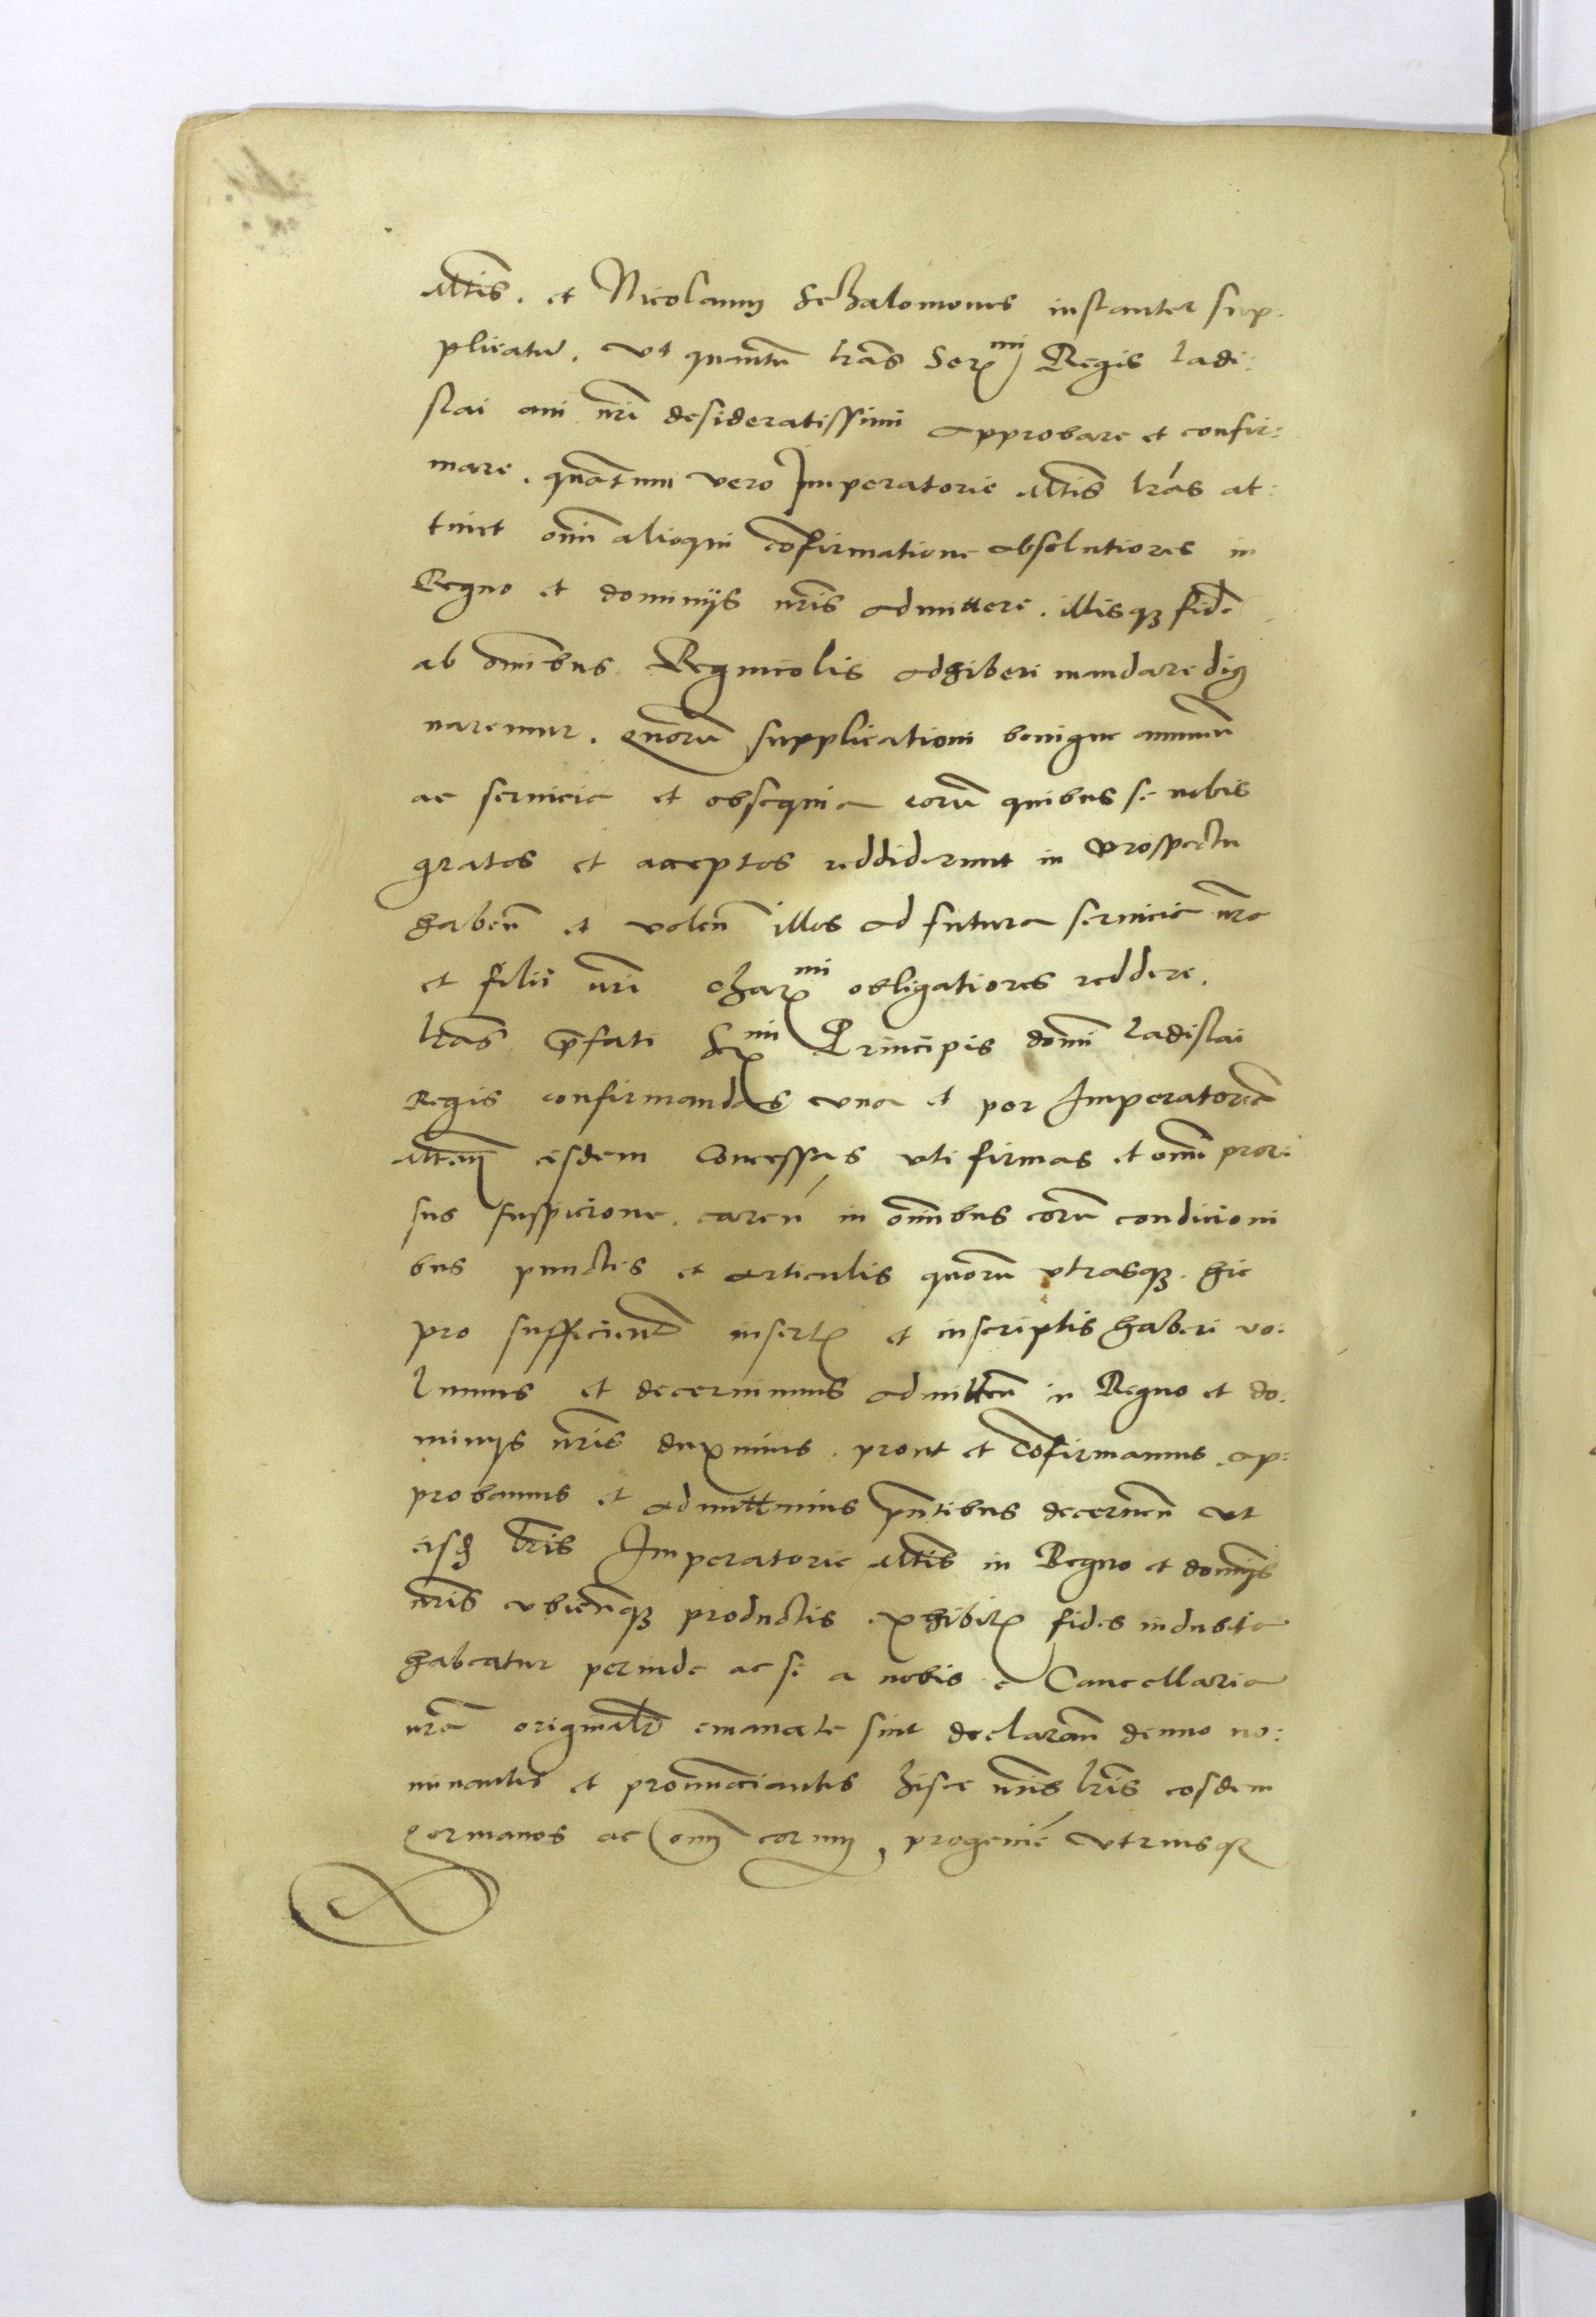 Mtis. et Nicolaum Schalomones instanter sup:
plicatū. Vt quantū lrās Serᵐⁱ Regis ladi:
slai aui nrī desideratissimi approbare et confir:
mare. quātum vero Imperatorie Mtis lrās at:
tinet omī alioqui cōfirmatione absolutiores in
Regno et dominijs nrīs admittere. illisqꝫ fidē
ab omībus Regnicolis adhiberi mandare dig
naremur. quorū supplicationi benigne annuen̄
ac seruicia et obsequia eorū quibus se nobis
gratos et acceptos reddiderunt in prospectu
haben̄ et volen̄ illos ad futura seruicia nrā
et filii nrī charᵐⁱ obligatiores reddere.
lrās p̄fati Serᵐⁱ Principis domī ladislai
Regis confirmandas vna et per Imperatoriā
Mtem eisdem concessas vti firmas et omī pror:
sus suspicione. caren̄ in omībus eorū condicioni
bus punctis et articulis quorū vtrasqꝫ. hic
pro sufficienter insertis et inscriptis haberi vo:
lumus et decernimus admitten̄ in Regno et do:
minijs nrīs duximus. prout et cōfirmamus. ap:
probamus et admittimus pn̄tibus decernen̄ vt
eisdem lrīs Imperatorie Mtis in Regno et domijs
nrīs vbicunqꝫ productis exhibitis fides indubia
habeatur perinde ac si a nobis e Cancellaria
nrā originalr̄ emanate sint declaran̄ denuo no:
minantes et pronunciantes hisce nrīs lrīs eosdem
germanos ac omnem eorum, progeniē vtriusqꝫ